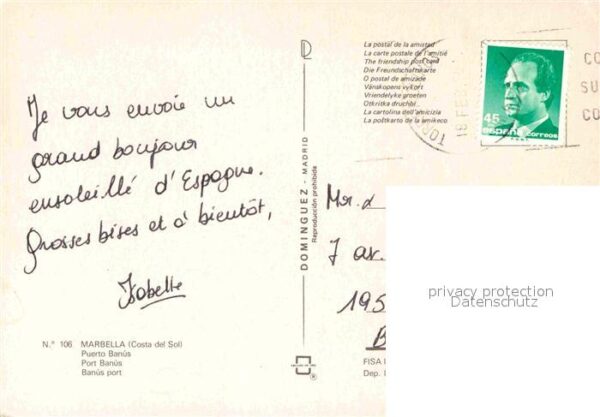 Je vous envoie un
grand boujour
ensoleillé d'Espagne.
Grosses bises et à bientôt,
Isabelle
N.° 106 MARBELLA (Costa del Sol)
Puerto Banús
Port Banús
Banús port
DOMINGUEZ - MADRID
Reproducción prohibida
La postal de la amistad
La carte postale de l'amitié
The friendship post card
Die Freundschaftskarte
O postal de amizade
Vänskapens vykort
Vriendelyke groeten
Otkriska druchbi
La cartolina dell'amicizia
La poŝtkarto de la amikeco
18 FEB
45
ESPAÑA correos
CO
SU
CO
Mr. &
7 av.
195
B
FISA
Dep.
privacy protection
Datenschutz